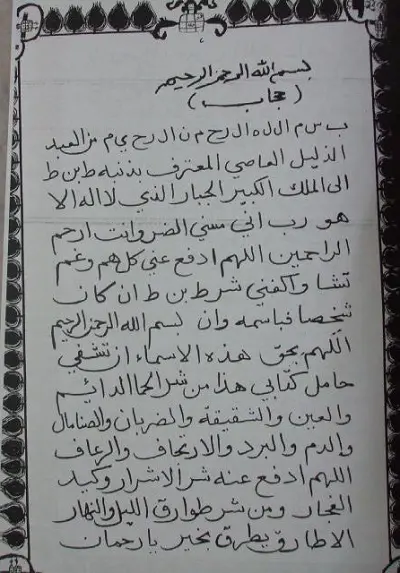 بسم الله الرحمن الرحيم
( حجاب )
ب س م ال ل ه ال ر ح م ن ال ر ح ي م من العبد
الذليل العاصي المعترف بذنبه ط بن ط
الى الملك الكبير الجبار الذي لا اله الا
هو رب اني مسني الضر وانت ارحم
الراحمين اللهم ادفع عني كل هم وغم
تشا واكفني شر ط بن ط ان كان
شخصا فباسمه وان بسم الله الرحمن الرحيم
اللهم بحق هذه الاسماء ان تشفي
حامل كتابي هذا من شر الحما الدائيم
والعين والشقيقه والضربان
والدم والبرد والارتجاف والرعاف
اللهم ادفع عنه شر الاشرار وكيد
الفجار ومن شر طوارق الليل والنهار
الا طارق يطرق بخير يا رحمان